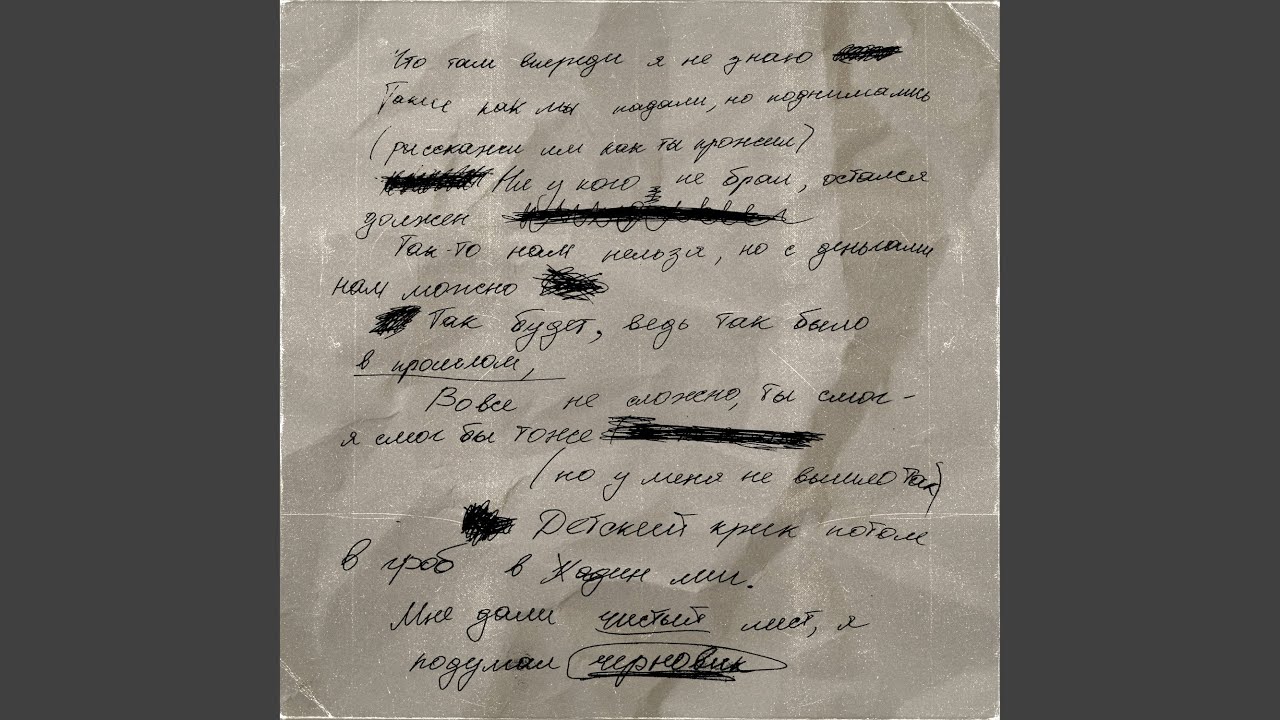 Что там впереди я не знаю
Такие как мы падали, но поднимались
(расскажи им как ты прожил)
Ни у кого не брал, остался
должен
Так-то нам нельзя, но с деньгами
нам можно
Так будет, ведь так было
в прошлом,
Вовсе не сложно, ты смог -
я смог бы тоже
(но у меня не вышло так)
Детский крик потом
в гроб в один миг.
Мне дали чистый лист, я
подумал черновик